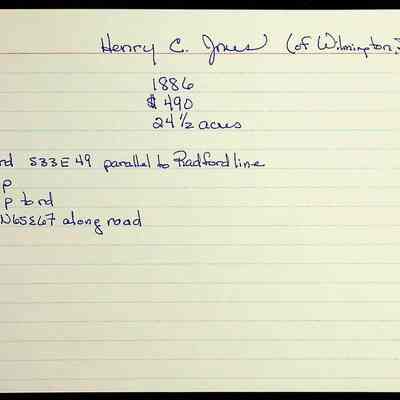 Henry C. Jones (of Wilmington,
1886
$490
24 1/2 acres
rd S33E 49 parallel to Radford line
p
p to rd
N65E67 along road